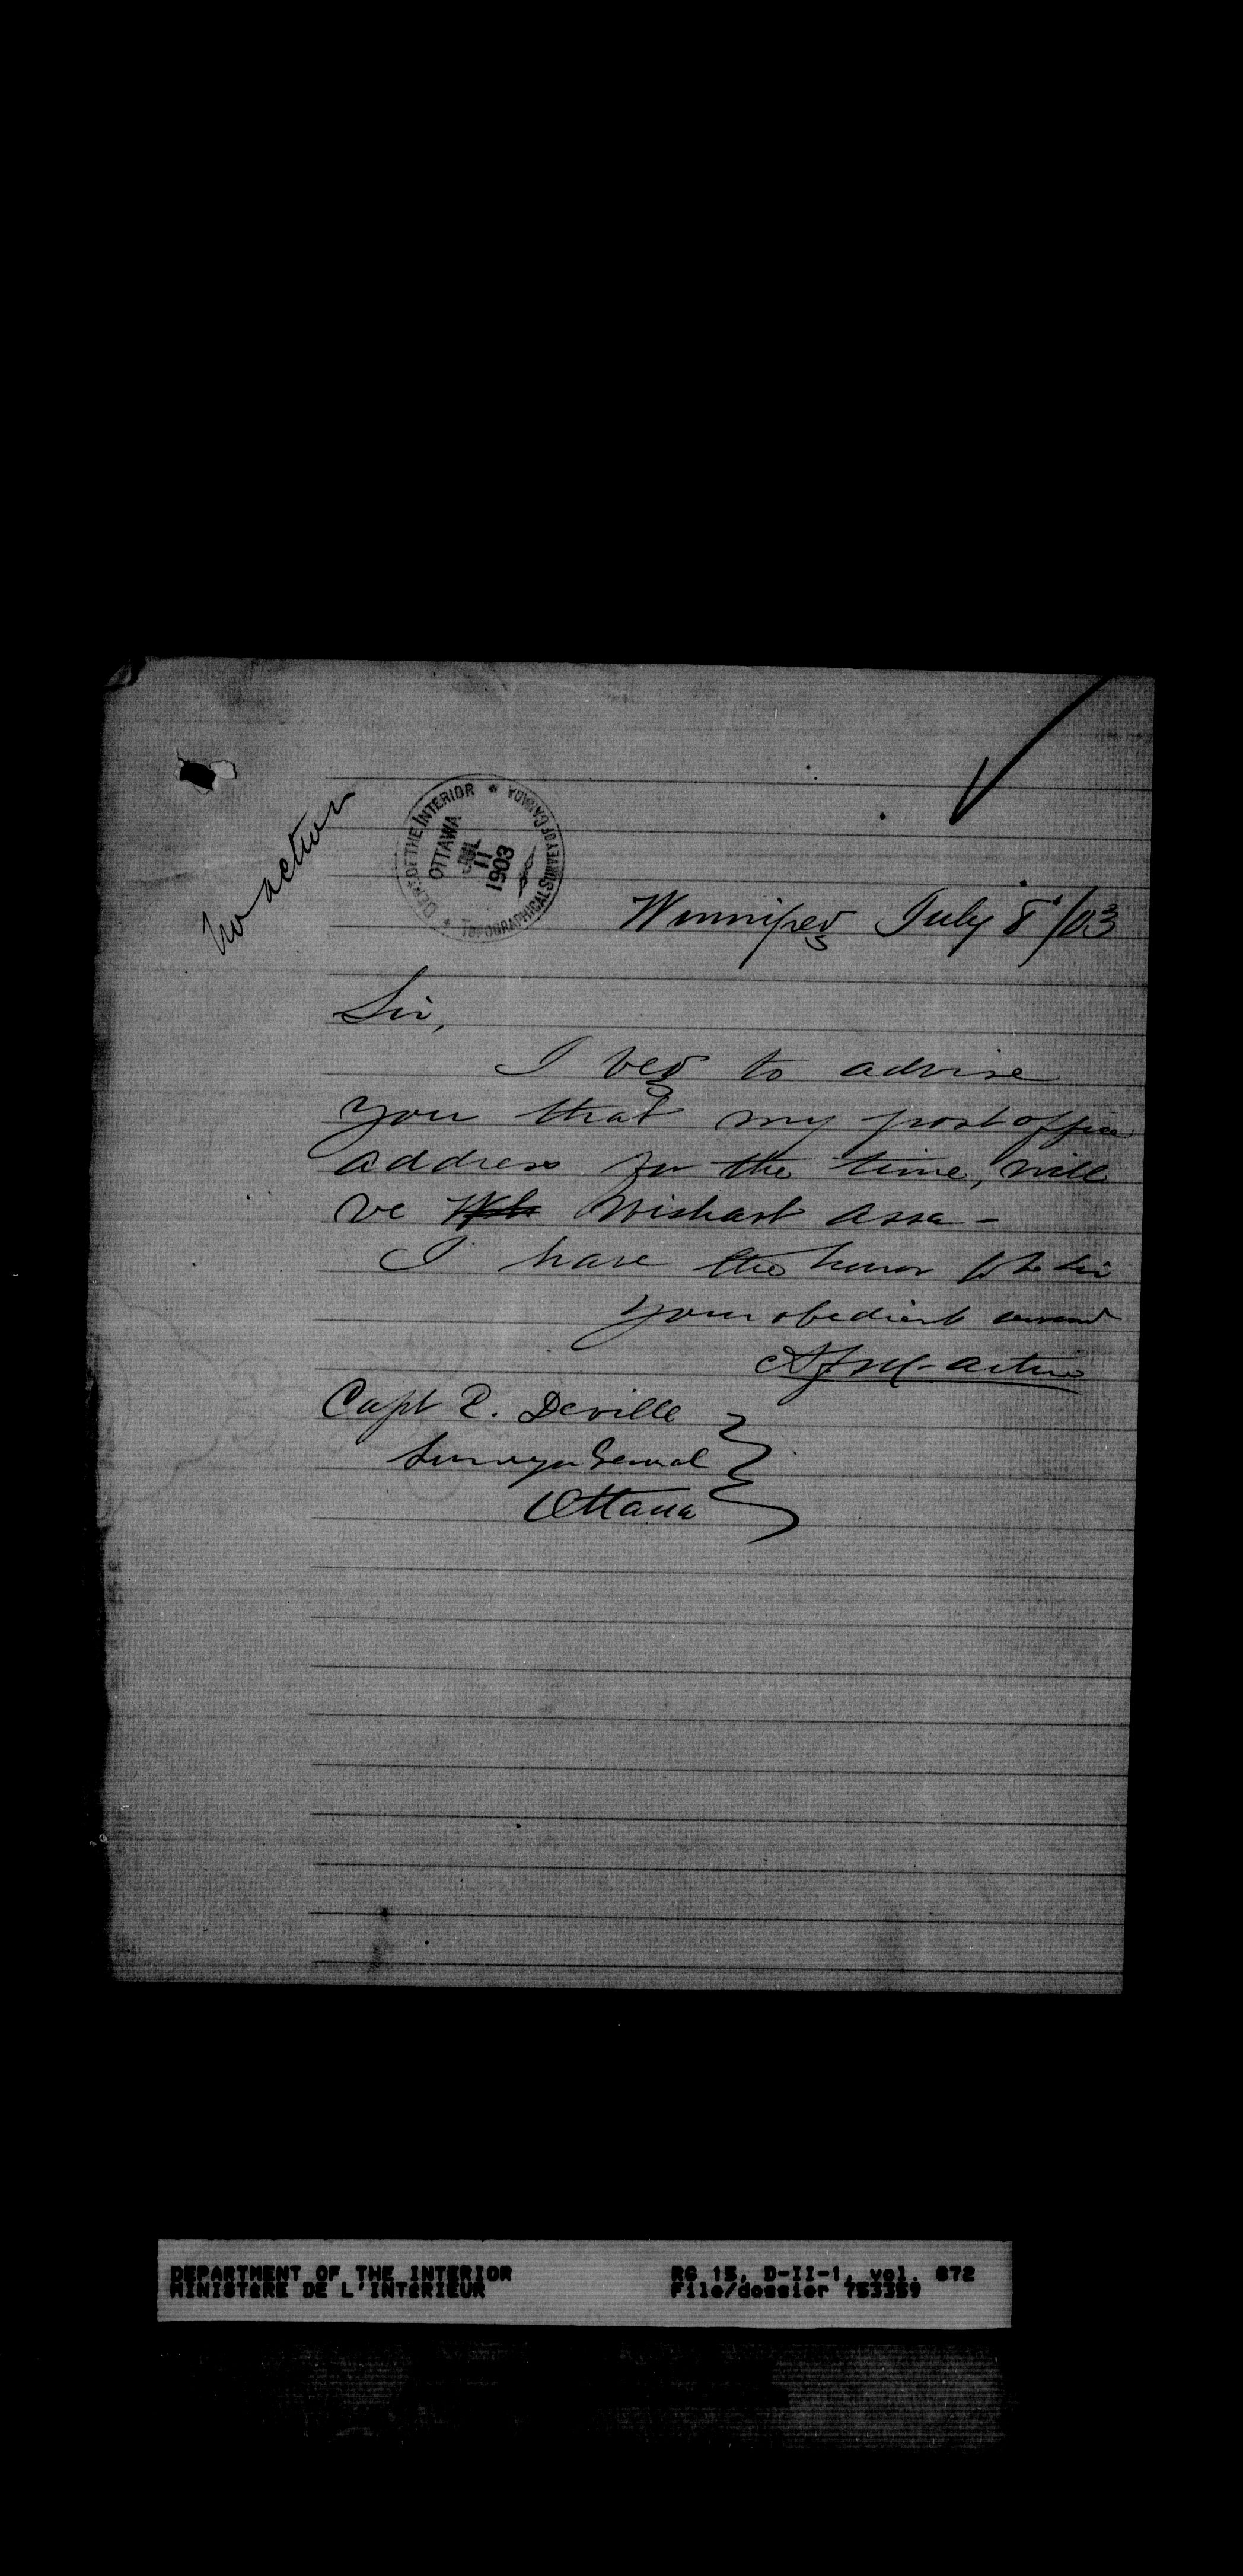 No action
DEPT. OF THE INTERIOR * TOPOGRAPHICAL SURVEY OF CANADA *
OTTAWA
JUL
11
1903
Winnipeg July 8/03
Sir,
I beg to advise
you that my post office
address for the time, will
be Wishart Assa-
I have the honor to be Sir
Your obedient servant
Capt E. Deville
Surveyor General
Ottawa
DEPARTMENT OF THE INTERIOR RG 15, D-II-1, vol. 872
MINISTERE DE L'INTERIEUR File/dossier 753359